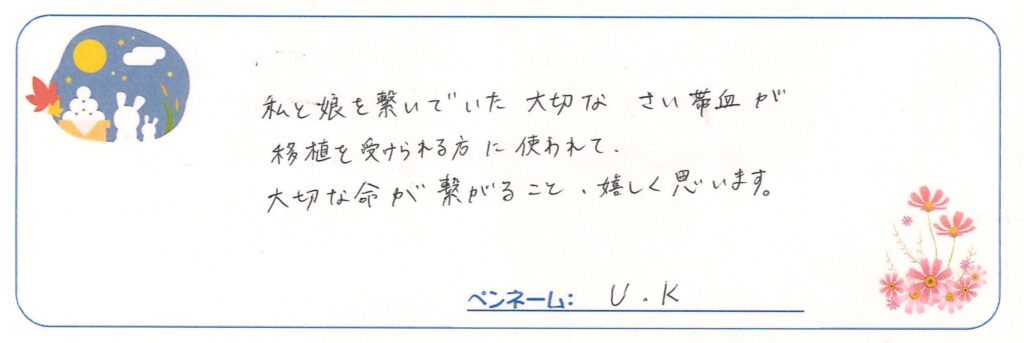 私と娘を繋いでいた 大切な さい帯血が
移植を受けられる方に使われて、
大切な命が繋がること、嬉しく思います。
ペンネーム: U.K